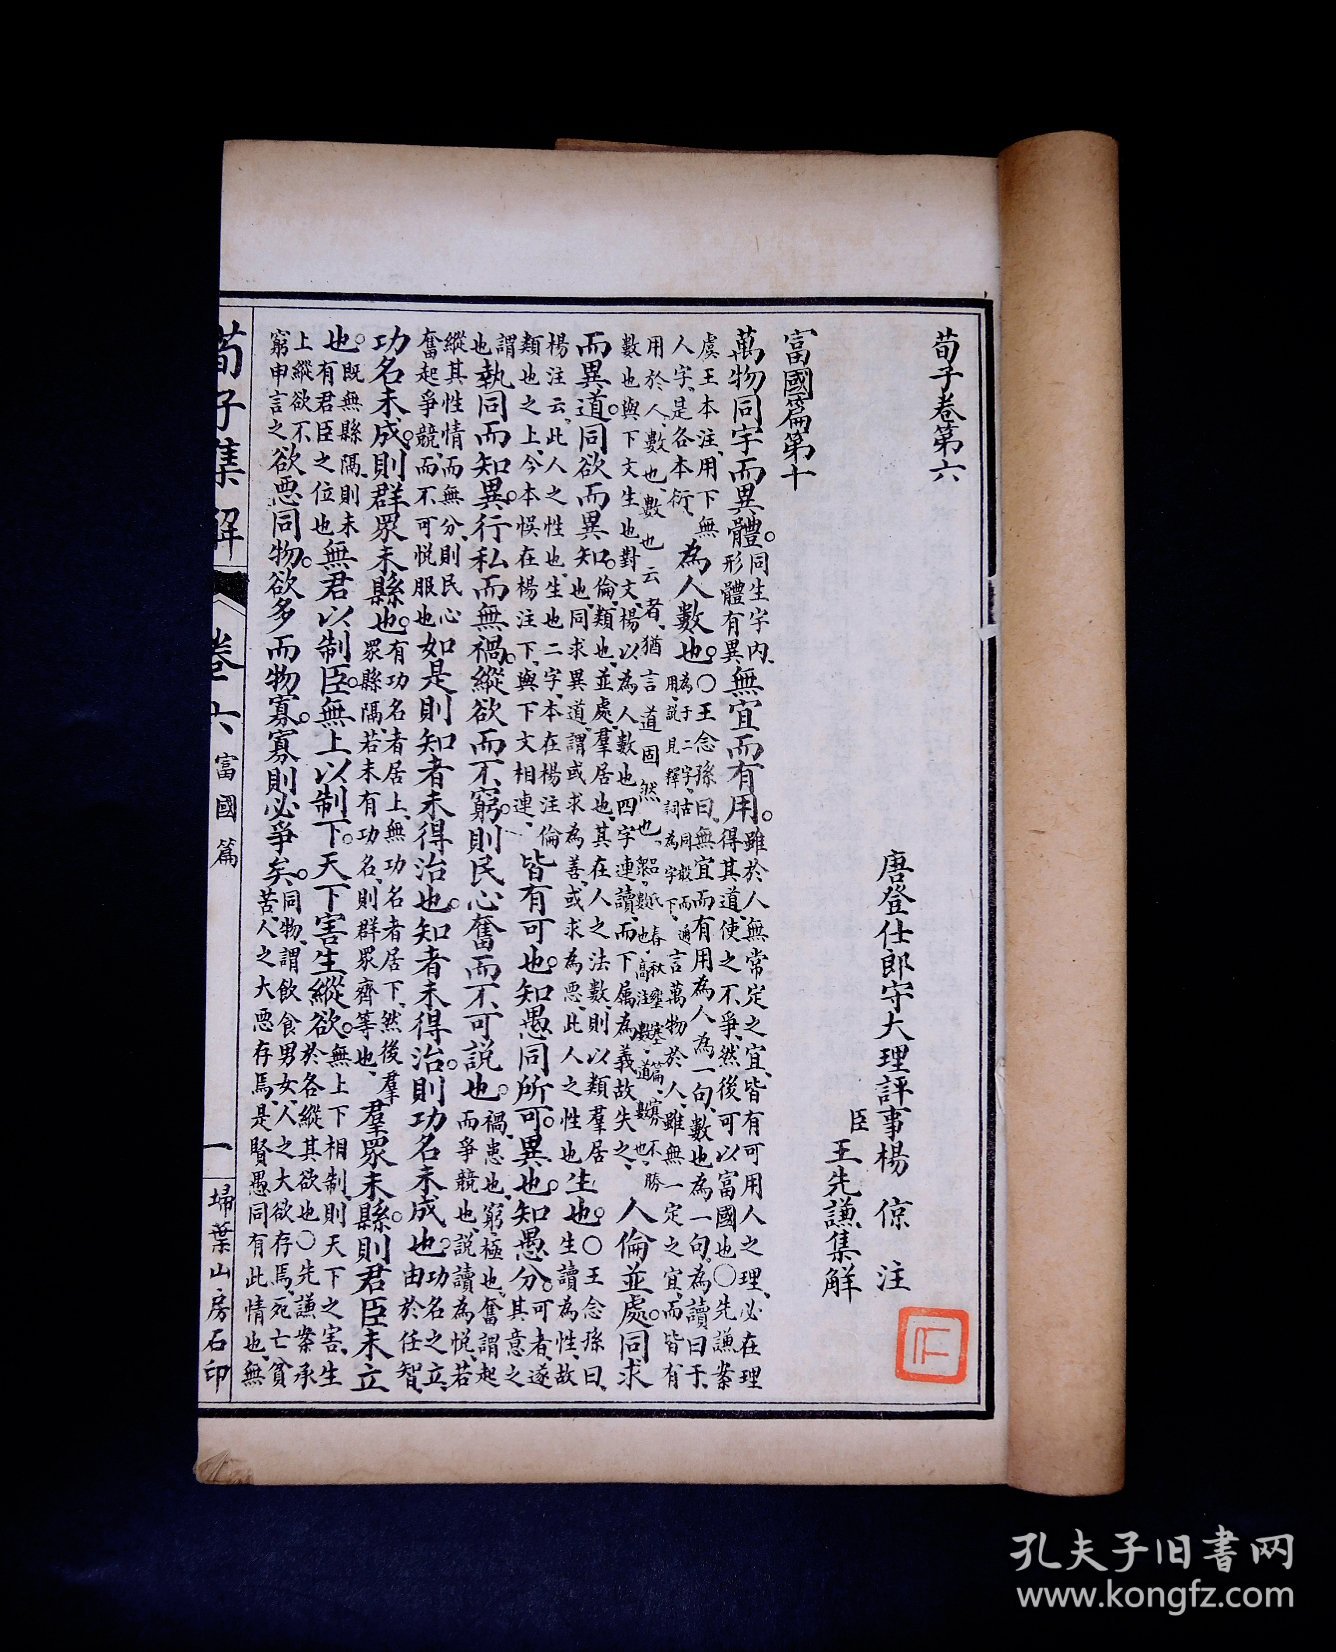 荀子卷第六
唐登仕郎守大理評事楊 倞 注
臣王先謙集解
富國篇第十
萬物同宇而異體。同生宇內、形體有異、無宜而有用。雖於人無常定之宜、皆有可用人之理、必在理得其道、使之不爭、然後可以富國也○先謙案
虞王本注、用下無人字、是、各本衍、為人數也。○王念孫曰、無宜而有用為人、為一句、數也為一句、為讀曰于、為于二字、古同聲而通用、說見釋詞為字下、言萬物於人、雖無一定之宜、而皆有
用於人、數也、數也云者、猶言道固然也、呂氏春秋壅塞篇、寡不勝眾、數也、高注、數、道數也、數也與下文生也對文、楊以為人數也四字連讀、而下属為義、故失之、人倫並處。同求
而異道。同欲而異知。倫、類也、並處、羣居也、其在人之法數、則以類羣居也、同求異道、謂或求為善、或求為惡、此人之性也生也。○王念孫曰、生讀為性、故
楊注云、此人之性也、生也二字、本在楊注倫類也之上、今本悞在楊注下、與下文相連、皆有可也。知愚同所可。異也。知愚分。可者、遂其意之
謂也、埶同而知異。行私而無禍。縱欲而不窮。則民心奮而不可說也。禍、患也、窮、極也、奮謂起而爭競也、說讀為悅、若
縱其性情而無分、則民心奮起爭競、而不可悅服也如是則知者未得治也。知者未得治。則功名未成也。功名之立、由於任智、
功名未成。則群眾未縣也。有功名者居上、無功名者居下、然後羣眾縣隔、若未有功名、則群眾齊等也、羣眾未縣。則君臣未立
也。既無縣隔、則未有君臣之位也無君以制臣。無上以制下。天下害生縱欲。無上下相制、則天下之害、生於各縱其欲也○先謙案承
上縱欲不窮申言之、欲惡同物。欲多而物寡。寡則必爭矣。同物、謂飲食男女、人之大欲存焉、死亡貧苦、人之大惡存焉、是賢愚同有此情也、無
荀子集解 卷六 富國篇 一 埽葉山房石印
孔夫子旧書网
www.kongfz.com